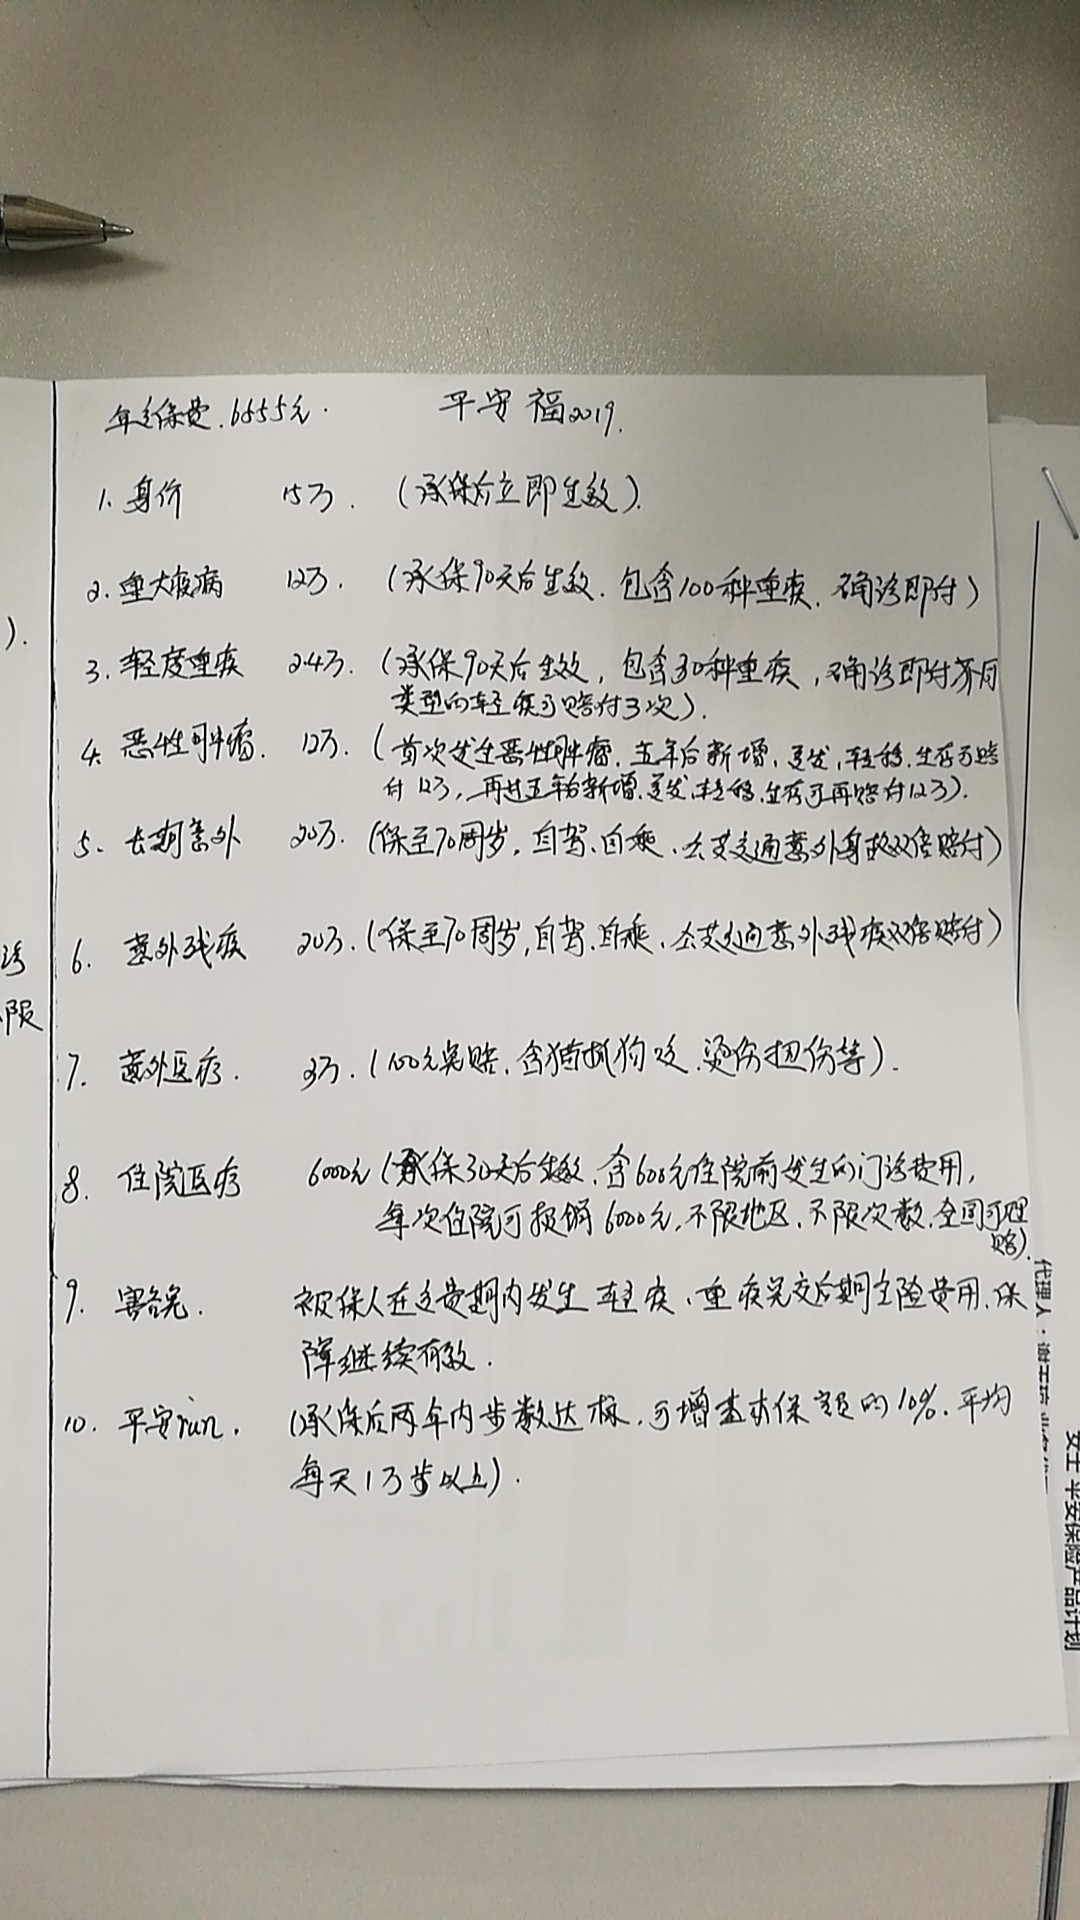 年交保费.6555元. 平安福2019.
1. 身价 15万. (承保后立即生效).
2. 重大疾病 12万. (承保90天后生效. 包含100种重疾. 确诊即付)
3. 轻度重疾 2.4万. (承保90天后生效, 包含30种重疾, 确诊即付不同
类型的轻疾可赔付3次).
4. 恶性肿瘤. 12万. (首次发生恶性肿瘤. 五年后新增、复发、转移、生存可赔
付12万, 再过五年后新增、复发、转移、生存可再赔付12万).
5. 长期意外 20万. (保至70周岁, 自驾、自乘、公共交通意外身故双倍赔付)
6. 意外残疾 20万. (保至70周岁, 自驾、自乘、公共交通意外残疾双倍赔付)
7. 意外医疗. 3万. (100元免赔, 含猫抓狗咬、烫伤扭伤等).
8. 住院医疗 6000元 (承保30天后生效. 含600元住院前发生的门诊费用,
每次住院可报销6000元, 不限地区、不限次数, 全国可理
赔).
9. 豁免. 被保人在交费期内发生轻疾、重疾免交后期主险费用、保
障继续有效.
10. 平安run. (承保后两年内步数达标, 可增基本保额的10%. 平均
每天1万步以上).
).
诊
限
代理人:谢
女士 平安保险产品计划